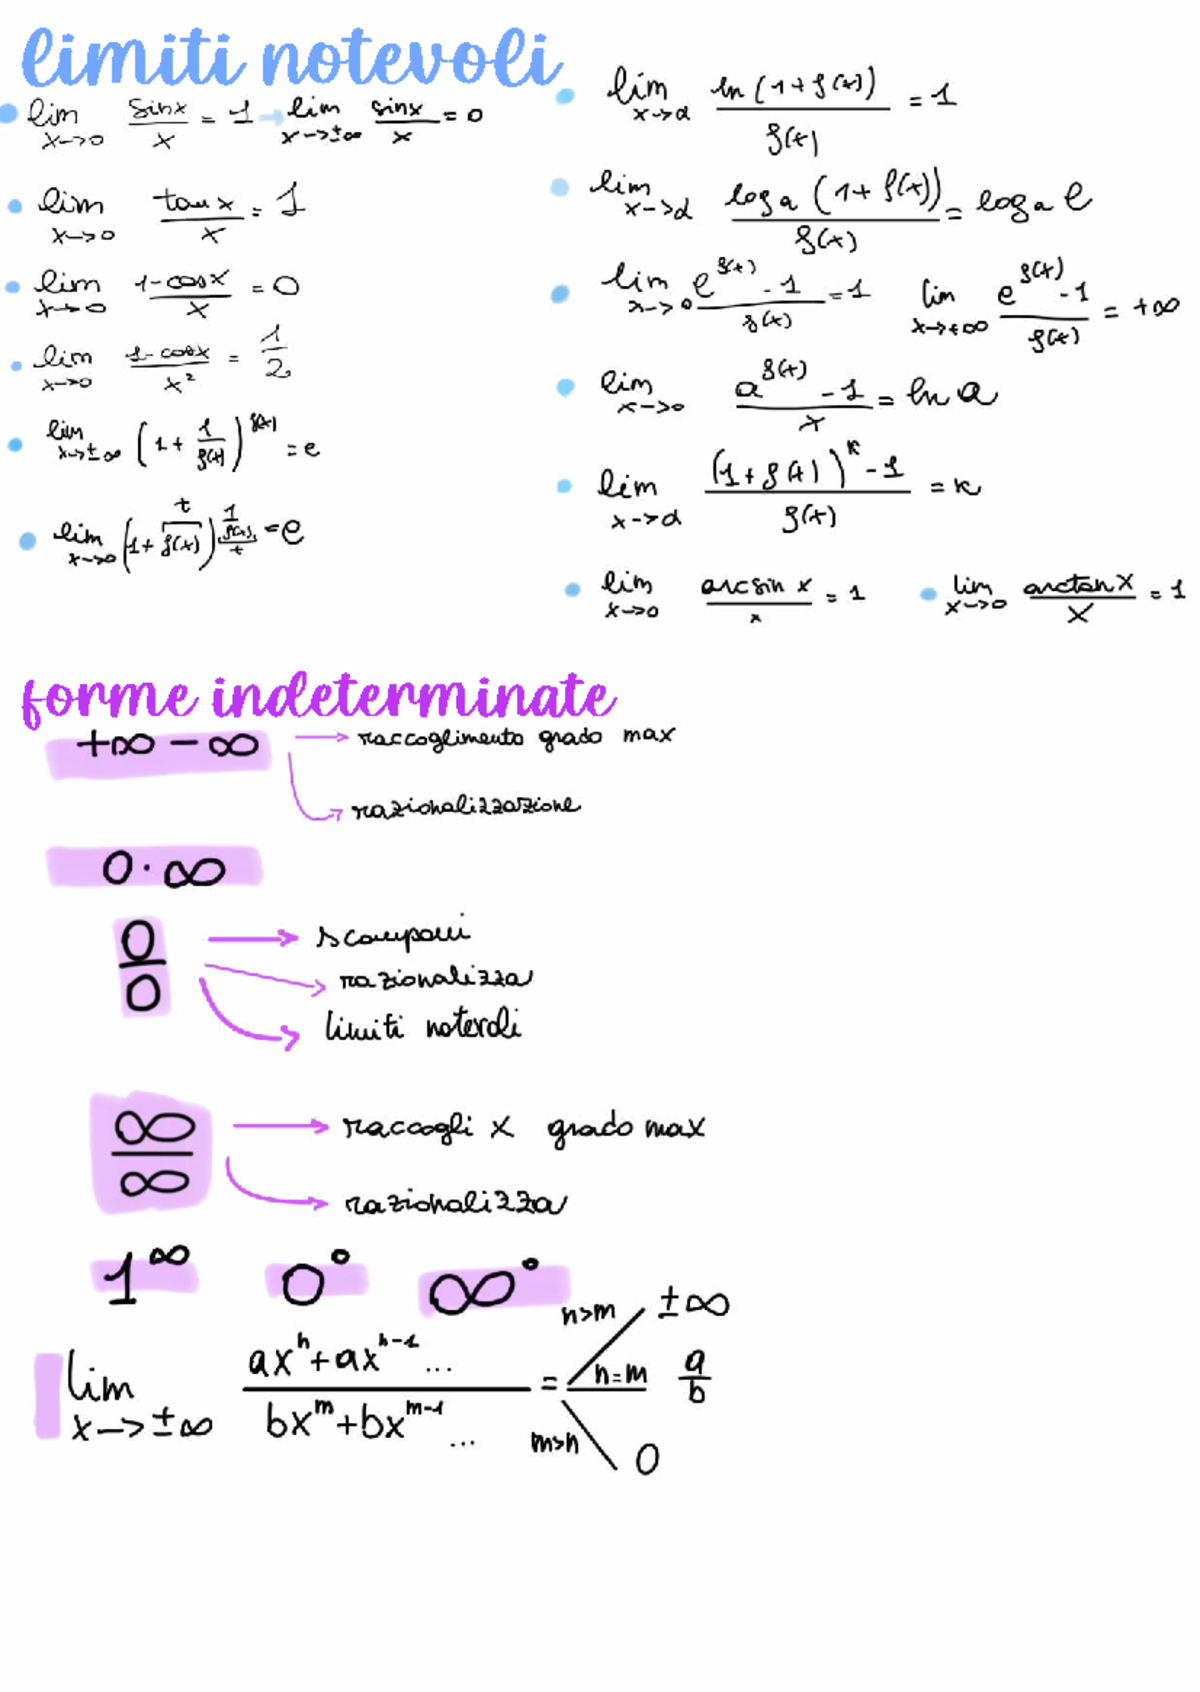 limiti notevoli
lim x→0 sinx/x = 1 → lim x→±∞ sinx/x = 0
lim x→0 tanx/x = 1
lim x→0 1-cosx/x = 0
lim x→0 1-cosx/x² = 1/2
lim x→±∞ (1+ 1/f(x))^f(x) = e
lim x→0 (1+ f(x))^1/f(x) = e
t
t
lim x→α ln(1+f(x))/f(x) = 1
lim x→α loga(1+f(x))/f(x) = loga e
lim x→0 e^f(x) -1/f(x) = 1 lim x→+∞ e^f(x) -1/f(x) = +∞
lim x→0 a^f(x) -1/x = ln a
lim x→α (1+f(x))^k -1/f(x) = k
lim x→0 arcsin x/x = 1 lim x→0 arctanx/x = 1
forme indeterminate
+∞ - ∞ → raccoglimento grado max
→ razionalizzazione
0·∞
0/0 → scomponi
→ razionalizza
→ limiti notevoli
∞/∞ → raccogli x grado max
→ razionalizza
1^∞ 0° ∞°
lim x→±∞ ax^n+ax^n-1.../bx^m+bx^m-1... =
n>m ±∞
n=m a/b
m>n 0